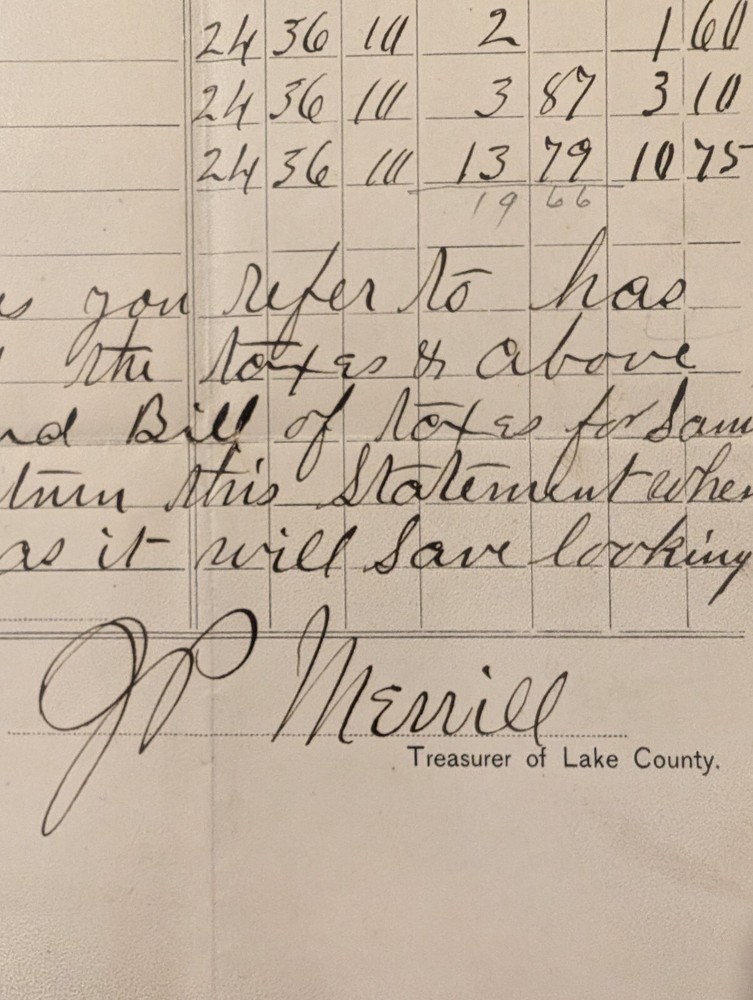 24 36 10 2 1 60
24 36 10 3 87 3 10
24 36 10 13 79 10 75
19 66
s you refer to has
the taxes & above
nd Bill of taxes for Sam
turn this Statement when
as it will save looking
JP Merrill
Treasurer of Lake County.